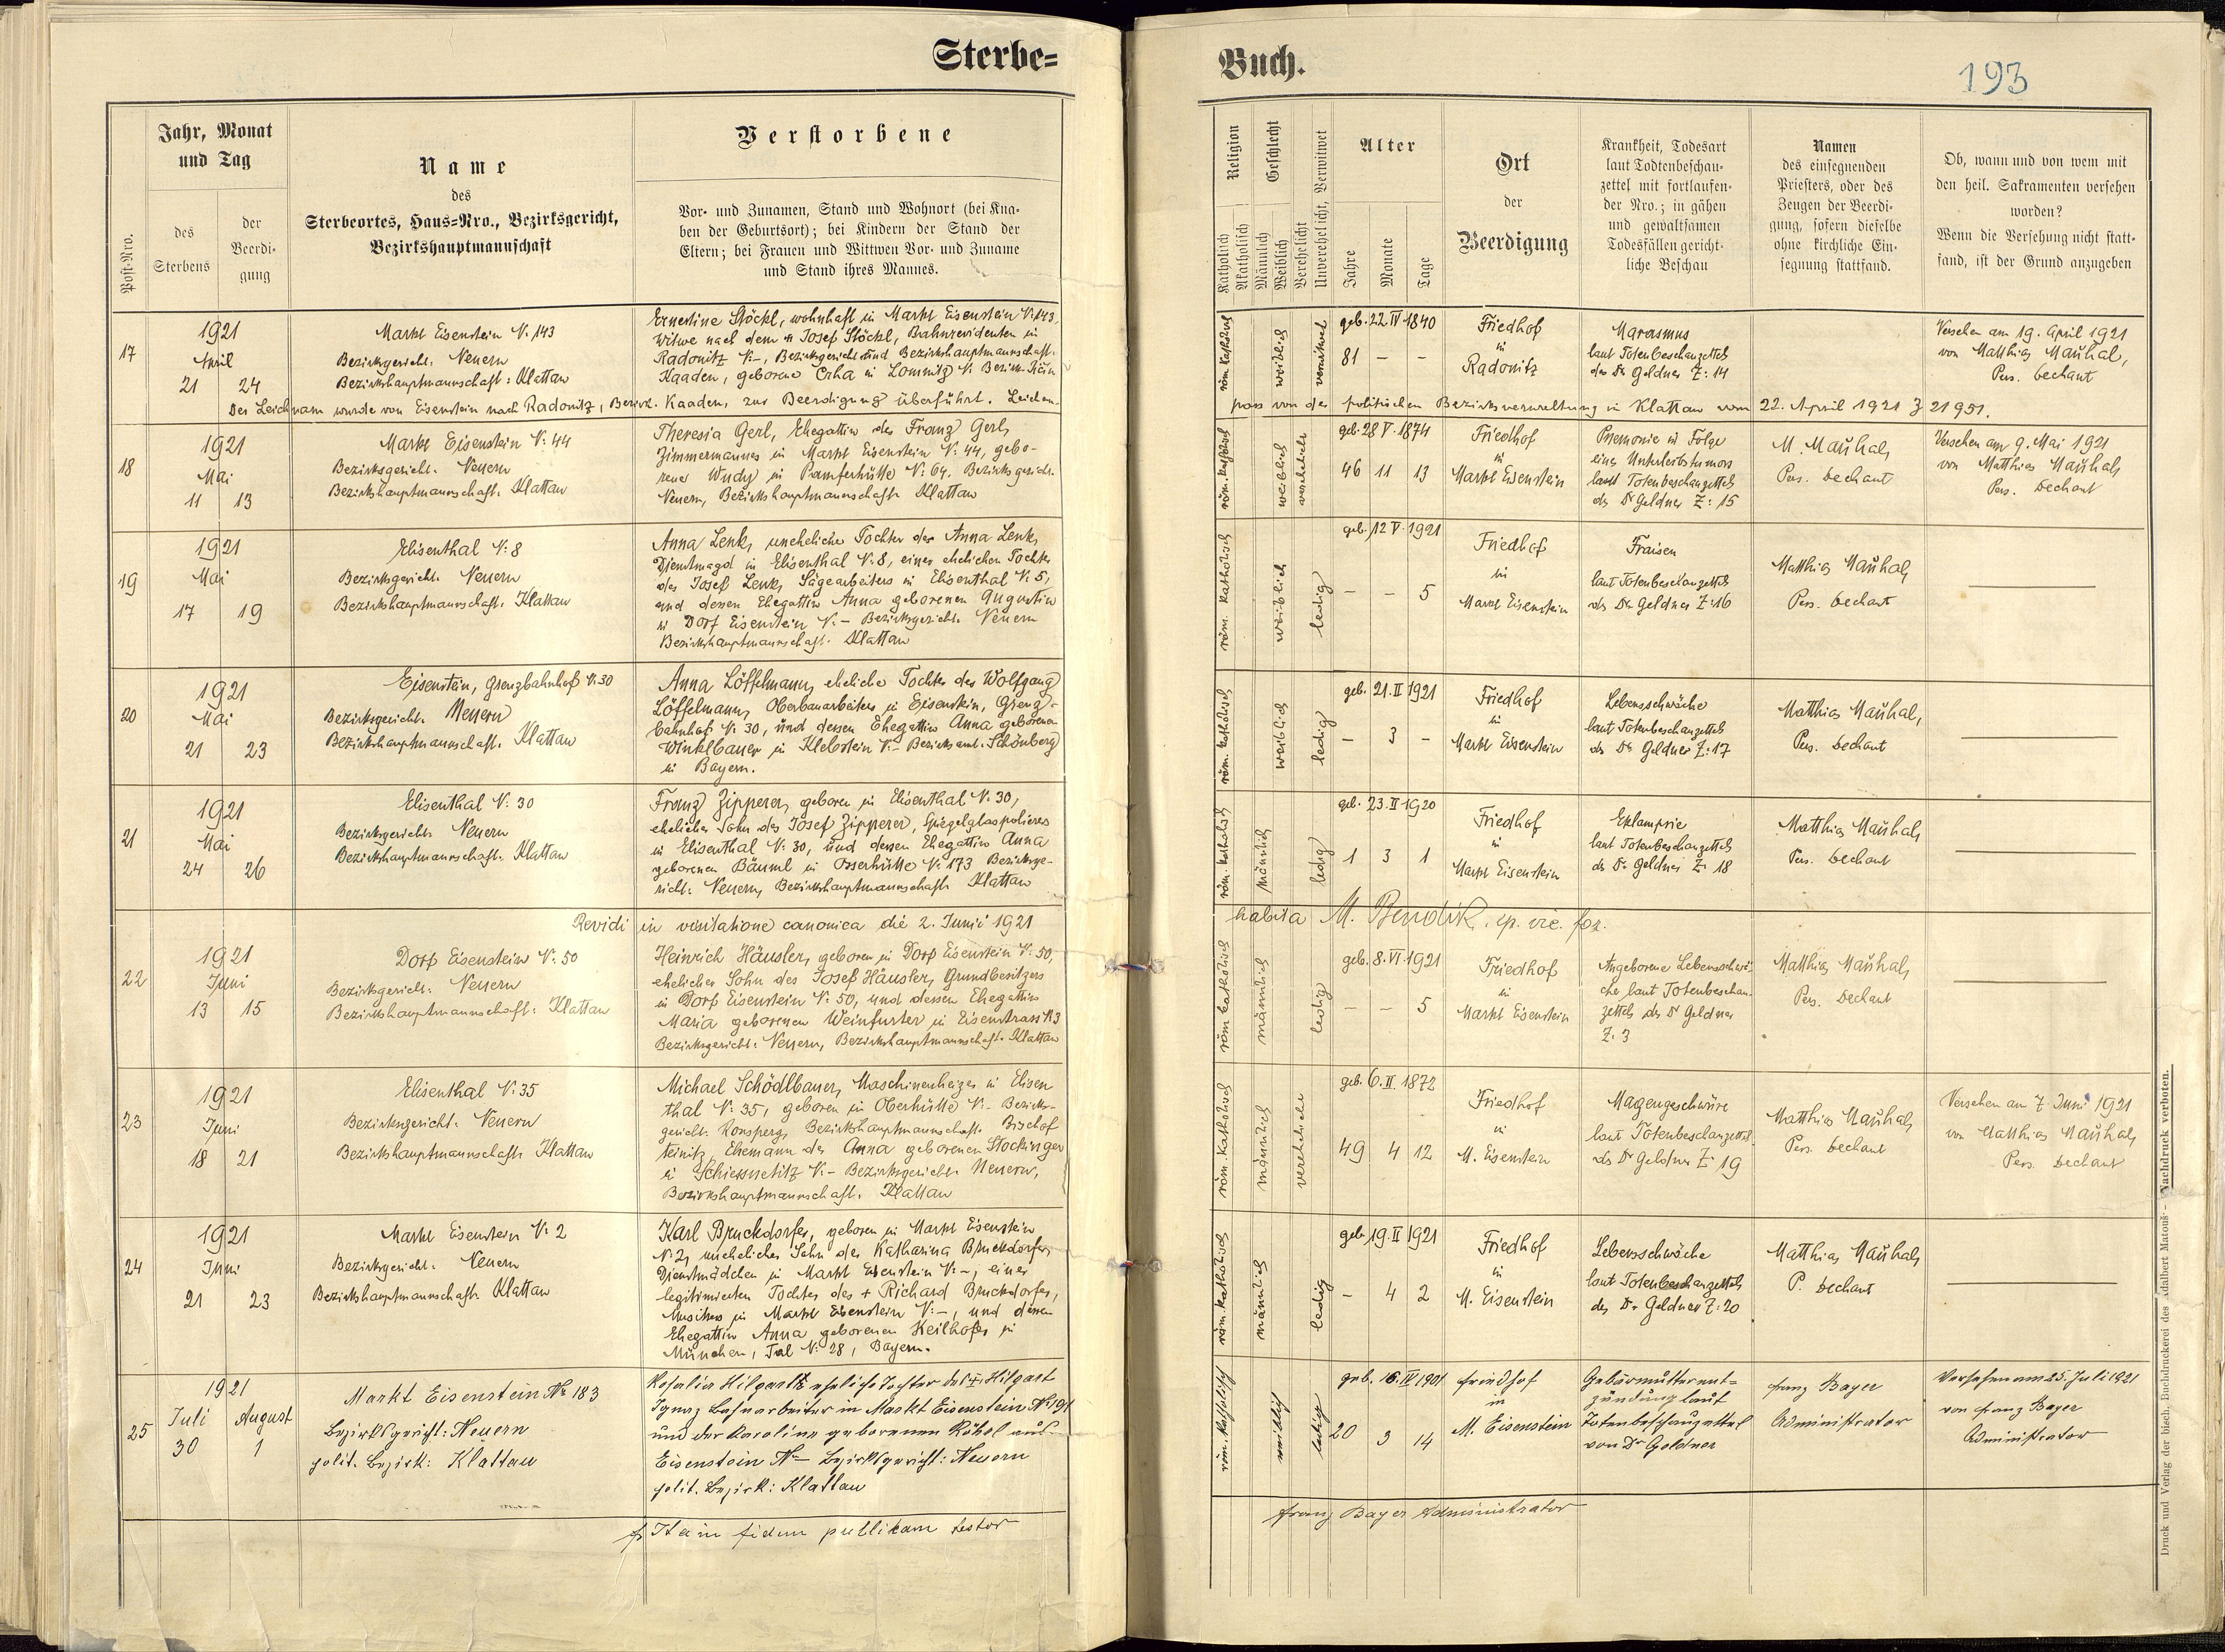 Sterbe=
Jahr, Monat
und Tag
Post-Nro.
des
Sterbens
der
Beerdi-
gung
Name
des
Sterbeortes, Haus=Nro., Bezirksgericht,
Bezirkshauptmannschaft
Verstorbene
Vor- und Zunamen, Stand und Wohnort (bei Kna-
ben der Geburtsort); bei Kindern der Stand der
Eltern; bei Frauen und Wittwen Vor- und Zuname
und Stand ihres Mannes.
17
1921
April
21 24
Markt Eisenstein N: 143
Bezirksgericht: Neuern
Bezirkshauptmannschaft: Klattau
Ernestine Stöckl, wohnhaft in Markt Eisenstein N: 143,
Witwe nach dem + Josef Stöckl, Bahnrevidenten in
Radonitz N:-, Bezirksgericht und Bezirkshauptmannschaft.
Kaaden, geborene Erha in Lommitz N: Bezirk
Der Leichnam wurde von Eisenstein nach Radonitz, Bezirk. Kaaden, zur Beerdigung überführt. Leichen-
18
1921
Mai
11 13
Markt Eisenstein N: 44
Bezirksgericht: Neuern
Bezirkshauptmannschaft: Klattau
Theresia Gerl, Ehegattin des Franz Gerl,
Zimmermannes in Markt Eisenstein N: 44, gebo-
rene Wudy in Pamferhütte N: 64. Bezirksgericht.
Neuern, Bezirkshauptmannschaft Klattau
19
1921
Mai
17 19
Elisenthal N: 8
Bezirksgericht: Neuern
Bezirkshauptmannschaft: Klattau
Anna Lenk, uneheliche Tochter der Anna Lenk,
Dienstmagd in Elisenthal N: 8, einer ehelichen Tochter
des Josef Lenk, Sägearbeiters in Elisenthal N: 5,
und dessen Ehegattin Anna geborenen Augustin
in Dorf Eisenstein N:- Bezirksgericht: Neuern
Bezirkshauptmannschaft: Klattau
20
1921
Mai
21 23
Eisenstein, Grenzbahnhof N: 30
Bezirksgericht: Neuern
Bezirkshauptmannschaft: Klattau
Anna Löffelmann, eheliche Tochter des Wolfgang
Löffelmann, Oberbauarbeiters in Eisenstein, Grenz-
bahnhof N: 30, und dessen Ehegattin Anna geborenen
Winklbauer in Klebstein N:- Bezirksamt: Schönberg
in Bayern.
21
1921
Mai
24 26
Elisenthal N: 30
Bezirksgericht: Neuern
Bezirkshauptmannschaft: Klattau
Franz Zipperer, geboren in Elisenthal N: 30,
ehelicher Sohn des Josef Zipperer, Spiegelglaspolierers
in Elisenthal N: 30, und dessen Ehegattin Anna
geborenen Bäuml in Osserhütte N: 173 Bezirksge-
richt: Neuern, Bezirkshauptmannschaft Klattau
Revidi in visitatione canonica die 2. Junii 1921
22
1921
Juni
13 15
Dorf Eisenstein N: 50
Bezirksgericht: Neuern
Bezirkshauptmannschaft: Klattau
Heinrich Häusler, geboren in Dorf Eisenstein N: 50,
ehelicher Sohn des Josef Häusler, Grundbesitzers
in Dorf Eisenstein N: 50, und dessen Ehegattin
Maria geborenen Weinfurter in Eisenstrass N: 3
Bezirksgericht: Neuern, Bezirkshauptmannschaft: Klattau
23
1921
Juni
18 21
Elisenthal N: 35
Bezirksgericht: Neuern
Bezirkshauptmannschaft Klattau
Michael Schödlbauer, Maschinenheizer in Elisen
thal N: 35, geboren in Oberhütte N:- Bezirks-
gericht: Ronsperg, Bezirkshauptmannschaft: Bischof
teinitz, Ehemann der Anna geborenen Stockinger
in N:- Bezirksgericht: Neuern,
Bezirkshauptmannschaft: Klattau
24
1921
Juni
21 23
Markt Eisenstein N: 2
Bezirksgericht: Neuern
Bezirkshauptmannschaft: Klattau
Karl Bruckdorfer, geboren in Markt Eisenstein
N: 2, unehelicher Sohn der Katharina Bruckdorfer,
Dienstmädchen in Markt Eisenstein N:-, einer
legitimierten Tochter des + Richard Bruckdorfer,
Musikers in Markt Eisenstein N:-, und dessen
Ehegattin Anna geborenen Keilhofer in
München, Tal N: 28, Bayern.
25
1921
Juli August
30 1
Markt Eisenstein No 183
Bezirksgericht: Neuern
polit. Bezirk: Klattau
Rosalia Hilgart eheliche Tochter des + Hilgart
Ignaz Bahnarbeiter in Markt Eisenstein No 191
und der Karolina geborenen Köhel aus
Eisenstein No - Bezirksgericht: Neuern
polit. Bezirk: Klattau
Ita in fidem publikam testor
Buch.
193
Religion
Katholisch
Akatholisch
Geschlecht
Männlich
Weiblich
Verehelicht
Unverehelicht, Verwitwet
Alter
Jahre
Monate
Tage
Ort
der
Beerdigung
Krankheit, Todesart
laut Todtenbeschau-
zettel mit fortlaufen-
der Nro.; in gähen
und gewaltsamen
Todesfällen gericht-
liche Beschau
Namen
des einsegnenden
Priesters, oder des
Zeugen der Beerdi-
gung, sofern dieselbe
ohne kirchliche Ein-
segnung stattfand.
Ob, wann und von wem mit
den heil. Sakramenten versehen
worden?
Wenn die Versehung nicht statt-
fand, ist der Grund anzugeben
röm. katholisch
weiblich
verwitwet
geb. 22 IV 1840
81 - -
Friedhof
in
Radonitz
Marasmus
laut Totenbeschauzettels
des Dr Geldner Z: 14
Versehen am 19. April 1921
von Matthias Maühal,
Pers. Dechant
pass von der politischen Bezirksverwaltung in Klattau vom 22. April 1921 Z 21951.
röm. katholisch
weiblich
verehelicht
geb. 28 V. 1874
46 11 13
Friedhof
in
Markt Eisenstein
Pnemonie in Folge
eines Unterleibstumors
laut Totenbeschauzettels
des Dr Geldner Z: 15
M. Maühal,
Pers. Dechant
Versehen am 9. Mai 1921
von Matthias Maühal,
Pers. Dechant
röm. katholisch
weiblich
ledig
geb. 12 V. 1921
- - 5
Friedhof
in
Markt Eisenstein
Fraisen
laut Totenbeschauzettels
des Dr Geldner Z: 16
Matthias Maühal,
Pers. Dechant
röm. katholisch
weiblich
ledig
geb. 21. II 1921
- 3 -
Friedhof
in
Markt Eisenstein
Lebensschwäche
laut Totenbeschauzettels
des Dr Geldner Z: 17
Matthias Maühal,
Pers. Dechant
röm. katholisch
männlich
ledig
geb. 23. II 1920
1 3 1
Friedhof
in
Markt Eisenstein
Eklampsie
laut Totenbeschauzettels
des Dr Geldner Z: 18
Matthias Maühal,
Pers. Dechant
habita M. Bendik, ep. vic. for.
röm katholisch
männlich
ledig
geb. 8. VI. 1921
- - 5
Friedhof
in
Markt Eisenstein
Angeborene Lebensschwä-
che laut Totenbeschau-
zettels des Dr Geldner
Z: 3
Matthias Maühal,
Pers. Dechant
röm katholisch
männlich
verehelicht
geb. 6. II. 1872
49 4 12
Friedhof
in
M. Eisenstein
Magengeschwüre
laut Totenbeschauzettel
des Dr Geldner Z: 19
Matthias Maühal,
Pers. Dechant
Versehen am 7. Juni 1921
von Matthias Maühal,
Pers. Dechant
röm. katholisch
männlich
ledig
geb. 19. II 1921
- 4 2
Friedhof
in
M. Eisenstein
Lebensschwäche
laut Totenbeschauzettels
des Dr Geldner Z: 20
Matthias Maühal,
P. Dechant
röm. katholisch
weiblich
ledig
geb. 16. IV 1901
20 3 14
Friedhof
in
M. Eisenstein
Gebärmutterent=
zündung laut
Totenbeschauzettel
von Dr Geldner
Franz Bayer
Administrator
Versehen am 25. Juli 1921
von Franz Bayer
Administrator
Franz Bayer Administrator
Druck und Verlag der bisch. Buchdruckerei des Adalbert Matouš - Nachdruck verboten.